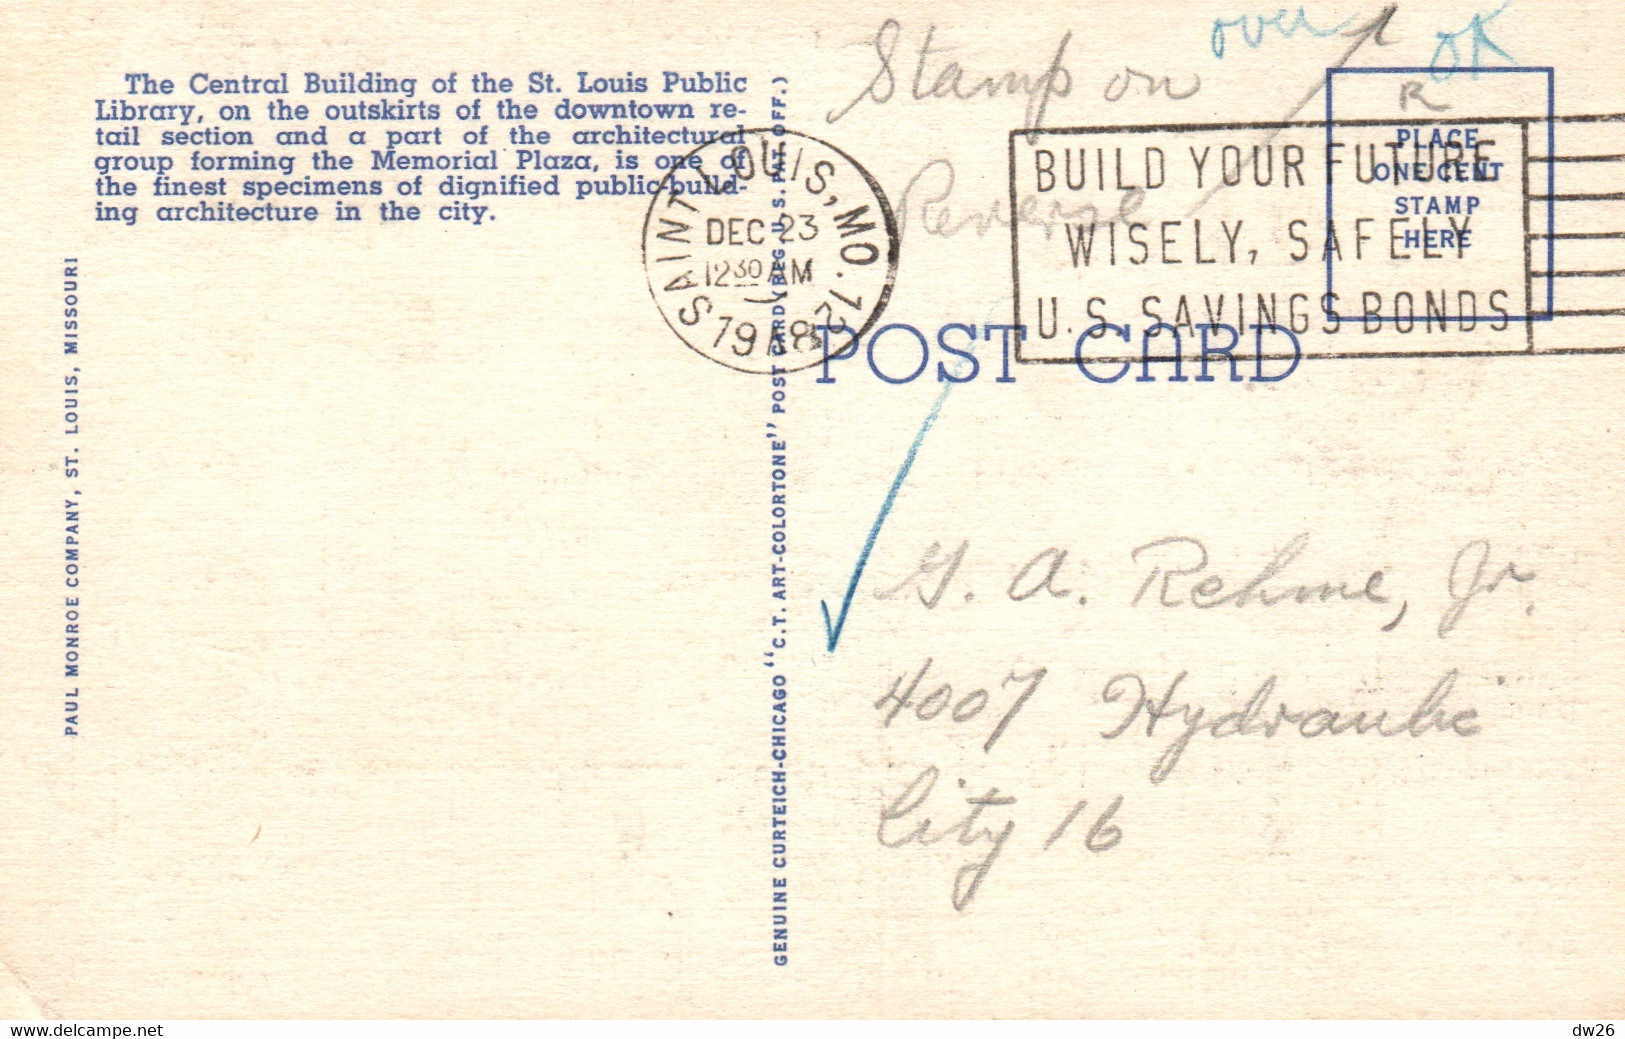 The Central Building of the St. Louis Public
Library, on the outskirts of the downtown re-
tail section and a part of the architectural
group forming the Memorial Plaza, is one of
the finest specimens of dignified public-build-
ing architecture in the city.
PAUL MONROE COMPANY, ST. LOUIS, MISSOURI
GENUINE CURTEICH-CHICAGO "C.T. ART-COLORTONE" POST CARD (REG. U.S. PAT. OFF.)
SAINT LOUIS, MO. 12
DEC 23
12 30 AM
1948
Stamp on
Reverse
over
OK
R
PLACE
ONE CENT
STAMP
HERE
BUILD YOUR FUTURE
WISELY, SAFELY
U.S. SAVINGS BONDS
POST CARD
G. A. Rehme, Jr.
4007 Hydraulic
City 16
www.delcampe.net
dw26